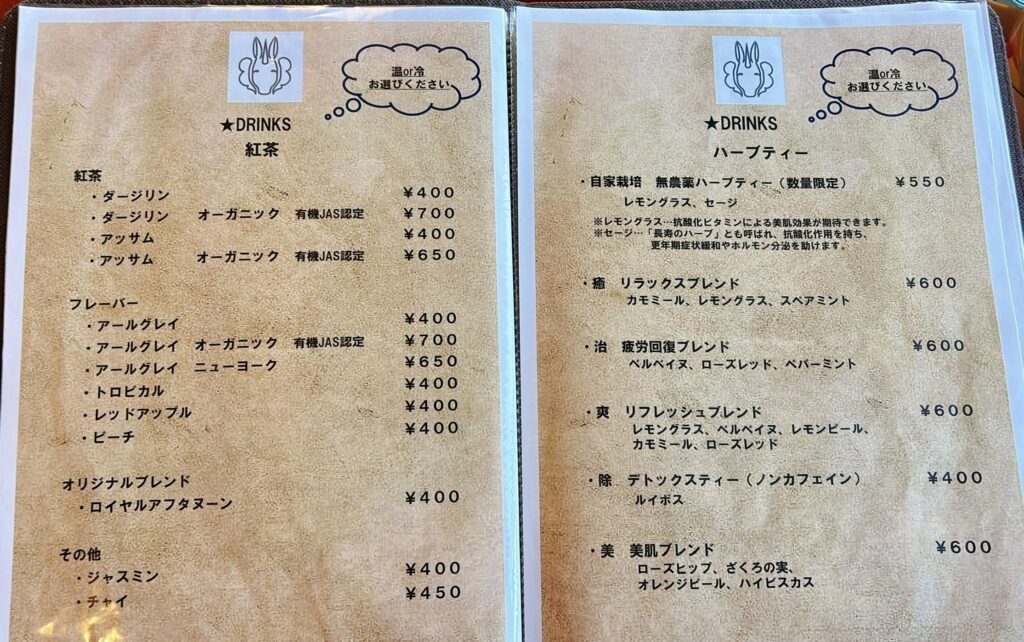 温or冷
お選びください
★DRINKS
紅茶
紅茶
・ダージリン ￥400
・ダージリン オーガニック 有機JAS認定 ￥700
・アッサム ￥400
・アッサム オーガニック 有機JAS認定 ￥650
フレーバー
・アールグレイ ￥400
・アールグレイ オーガニック 有機JAS認定 ￥700
・アールグレイ ニューヨーク ￥650
・トロピカル ￥400
・レッドアップル ￥400
・ピーチ ￥400
オリジナルブレンド
・ロイヤルアフタヌーン ￥400
その他
・ジャスミン ￥400
・チャイ ￥450
温or冷
お選びください
★DRINKS
ハーブティー
・自家栽培 無農薬ハーブティー（数量限定） ￥550
レモングラス、セージ
※レモングラス…抗酸化ビタミンによる美肌効果が期待できます。
※セージ…「長寿のハーブ」とも呼ばれ、抗酸化作用を持ち、
更年期症状緩和やホルモン分泌を助けます。
・癒 リラックスブレンド ￥600
カモミール、レモングラス、スペアミント
・治 疲労回復ブレンド ￥600
ベルベイヌ、ローズレッド、ペパーミント
・爽 リフレッシュブレンド ￥600
レモングラス、ベルベイヌ、レモンピール、
カモミール、ローズレッド
・除 デトックスティー（ノンカフェイン） ￥400
ルイボス
・美 美肌ブレンド ￥600
ローズヒップ、ざくろの実、
オレンジピール、ハイビスカス